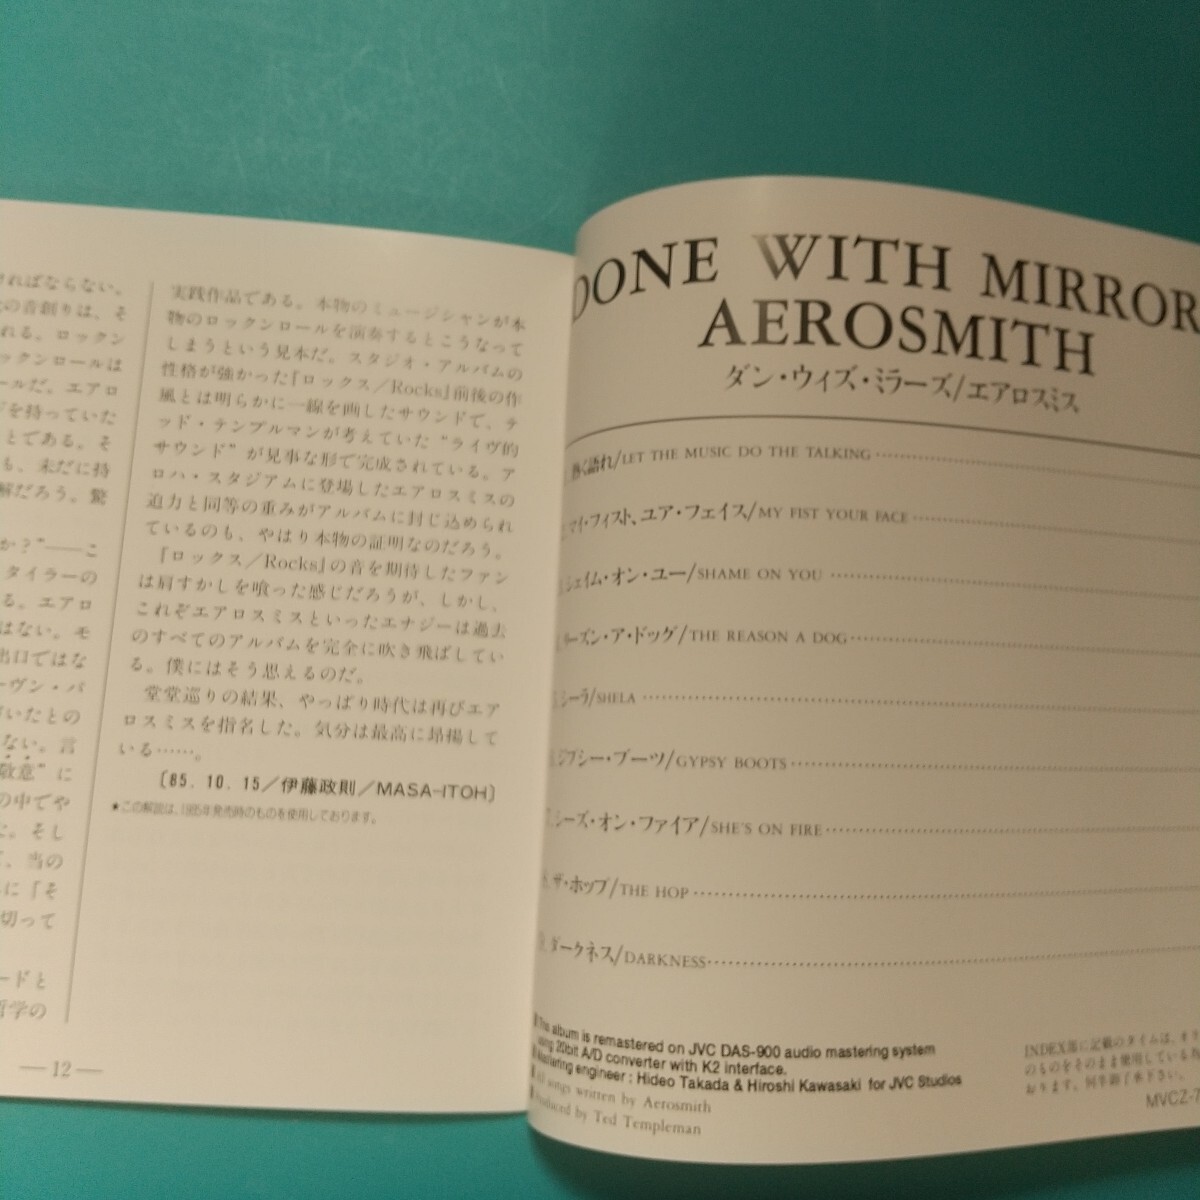 ければならない。
の音創りは、そ
れる。ロックン
ックンロールは
ールだ。エアロ
を持っていた
とである。そ
も、未だに持
解だろう。驚
か？"——こ
タイラーの
る。エアロ
はない。モ
出口ではな
ーヴン・パ
いたとの
ない。言
敬意"に
の中でや
た。そし
、当の
に「そ
切って
ードと
哲学の
—12—
実践作品である。本物のミュージシャンが本
物のロックンロールを演奏するとこうなって
しまうという見本だ。スタジオ・アルバムの
性格が強かった『ロックス／Rocks』前後の作
風とは明らかに一線を画したサウンドで、テ
ッド・テンプルマンが考えていた"ライヴ的
サウンド"が見事な形で完成されている。ア
ロハ・スタジアムに登場したエアロスミスの
迫力と同等の重みがアルバムに封じ込められ
ているのも、やはり本物の証明なのだろう。
『ロックス／Rocks』の音を期待したファン
は肩すかしを喰った感じだろうが、しかし、
これぞエアロスミスといったエナジーは過去
のすべてのアルバムを完全に吹き飛ばしてい
る。僕にはそう思えるのだ。
堂堂巡りの結果、やっぱり時代は再びエア
ロスミスを指名した。気分は最高に昻揚して
いる……。
〔85. 10. 15／伊藤政則／MASA-ITOH〕
★この解説は、1985年発売時のものを使用しております。
DONE WITH MIRROR
AEROSMITH
ダン・ウィズ・ミラーズ/エアロスミス
熱く語れ/LET THE MUSIC DO THE TALKING
マイ・フィスト、ユア・フェイス/MY FIST YOUR FACE
シェイム・オン・ユー/SHAME ON YOU
リーズン・ア・ドッグ/THE REASON A DOG
シーラ/SHELA
ジプシー・ブーツ/GYPSY BOOTS
シーズ・オン・ファイア/SHE'S ON FIRE
ザ・ホップ/THE HOP
9. ダークネス/DARKNESS
This album is remastered on JVC DAS-900 audio mastering system
using 20bit A/D converter with K2 interface.
Mastering engineer : Hideo Takada & Hiroshi Kawasaki for JVC Studios
All songs written by Aerosmith
Produced by Ted Templeman
INDEX部に記載のタイムは、オリ
のものをそのまま使用している為
おります。何卒御了承下さい。
MVCZ-7